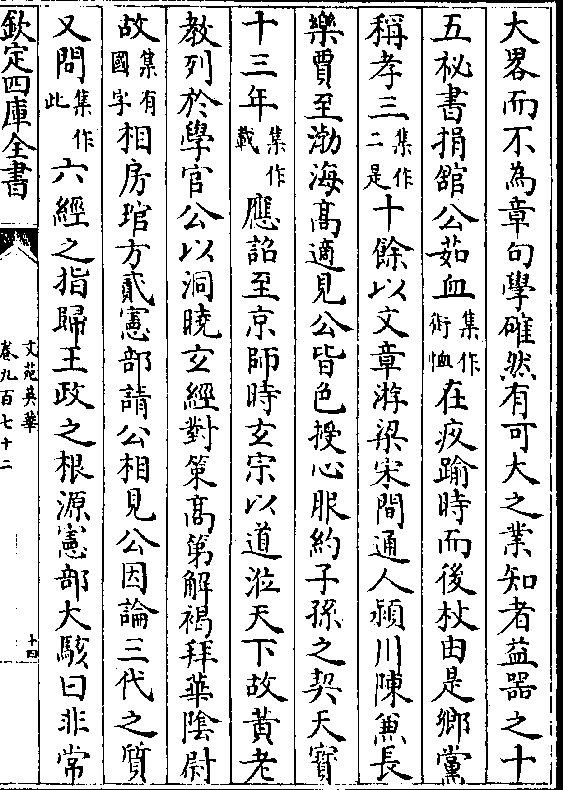 大畧而不為章句學確然有可大之業知者益器之十
五祕書捐館公茹血集作銜恤在疚踰時而後杖由是鄉黨
稱孝三集作二是十餘以文章游梁宋間通人潁川陳兼長
樂賈至渤海高適見公皆色授心服約子孫之契天寶
十三年集作載應詔至京師時玄宗以道涖天下故黃老
教列於學官公以洞曉玄經對策高第解褐拜華陰尉
故集有國字相房琯方貳憲部請公相見公因論三代之質
又問集作此六經之指歸王政之根源憲部大駭曰非常
欽定四庫全書
文苑英華
卷九百七十二
十四